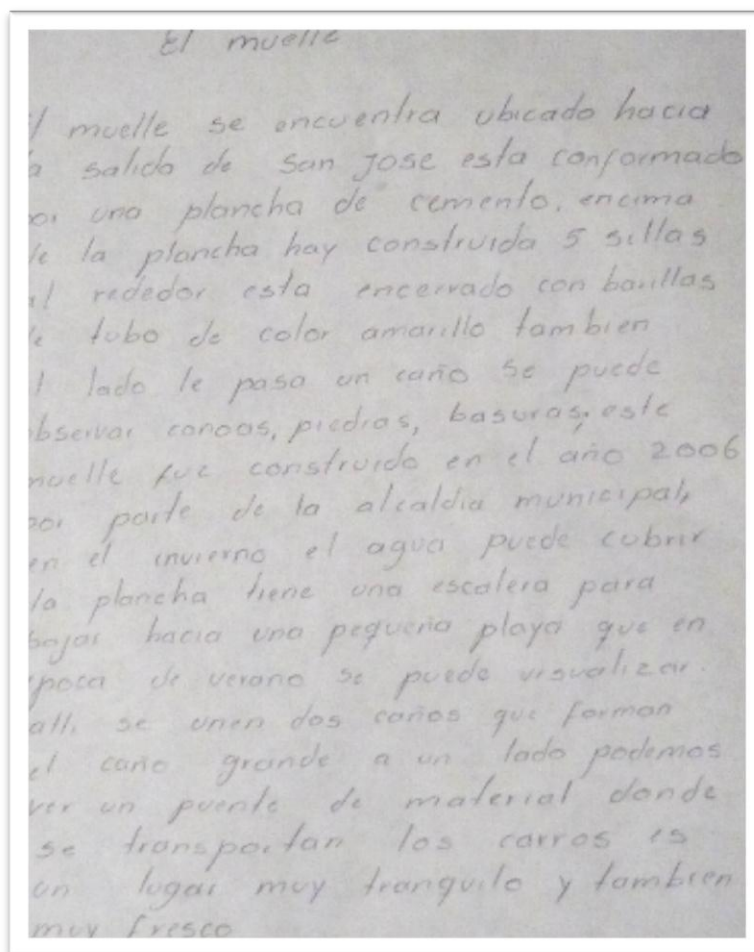 El muelle
l muelle se encuentra ubicado hacia
a salida de San Jose esta conformado
por una plancha de cemento, encima
de la plancha hay construida 5 sillas
al rededor esta encerrado con barillas
de tubo de color amarillo tambien
l lado le pasa un caño se puede
bservar canoas, piedras, basuras, este
muelle fue construido en el año 2006
por parte de la alcaldia municipal,
en el invierno el agua puede cubrir
la plancha tiene una escalera para
bajar hacia una pequeña playa que en
epoca de verano se puede visualizar.
alli se unen dos caños que forman
el caño grande a un lado podemos
ver un puente de material donde
se transportan los carros es
un lugar muy tranquilo y tambien
muy fresco